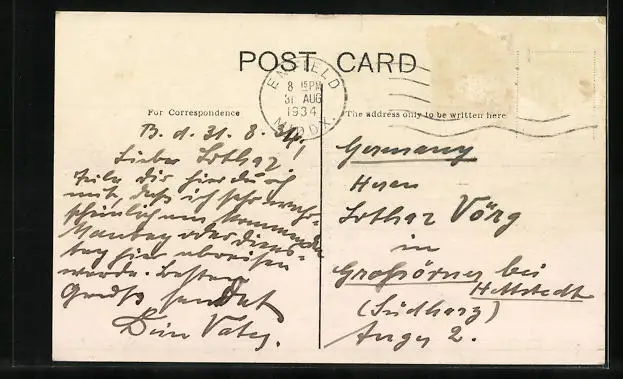 POST CARD
ENFIELD
8 15 PM
31 AUG
1934
MIDDX.
For Correspondence
The address only to be written here
B. d. 31. 8. 34.
Lieber Lothar!
Teile Dir hierdurch
mit, daß ich sehr wahr-
scheinlich am kommenden
Montag oder Diens-
tag hier abreisen
werde. Besten
Gruß sendet
Dein Vater.
Germany
Herrn
Lothar Vörg
in
Großörner bei
Hettstedt
(Südharz)
Anger 2.